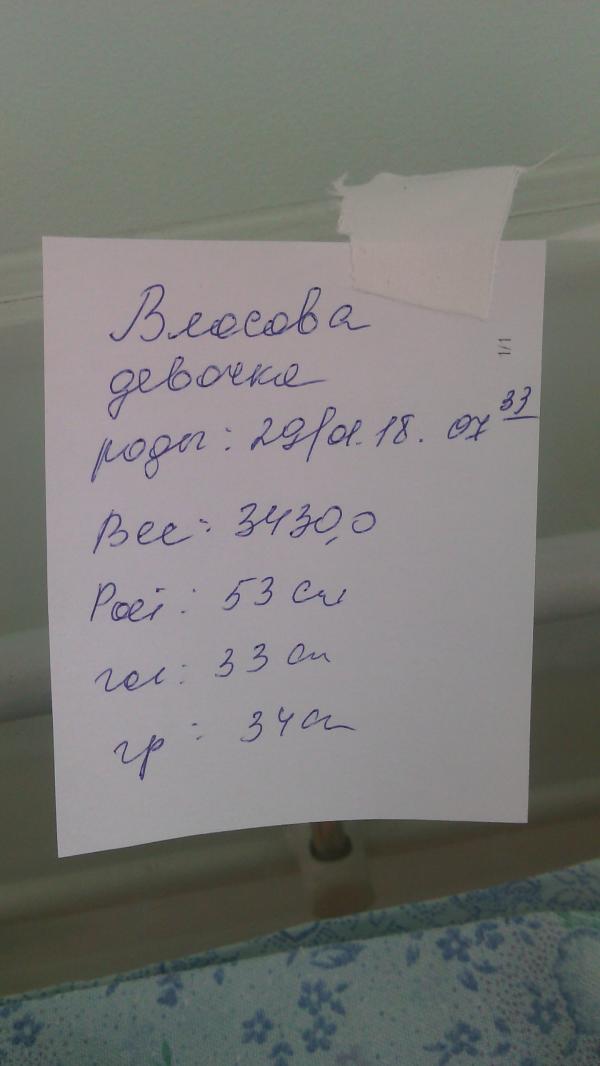 Власова
девочка
роды: 29/01.18. 07 33
Вес: 3430,0
Рост: 53 см
гол: 33 см
гр: 34 см
1/1